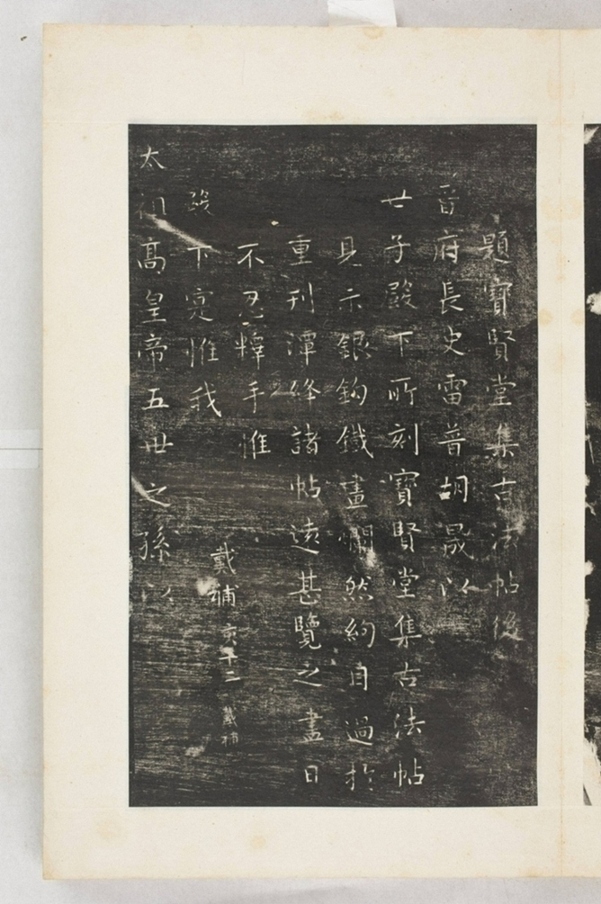 題寳賢堂集古法帖後
晉府長史雷普胡晟以
世子殿下所刻寳賢堂集古法帖
見示銀鈎鐵畫爛然約自過於
重刋潭絳諸帖遠甚覽之盡日
不忍釋手惟
殿下寔惟我
太祖高皇帝五世之孫以
戴補 十三 戴補